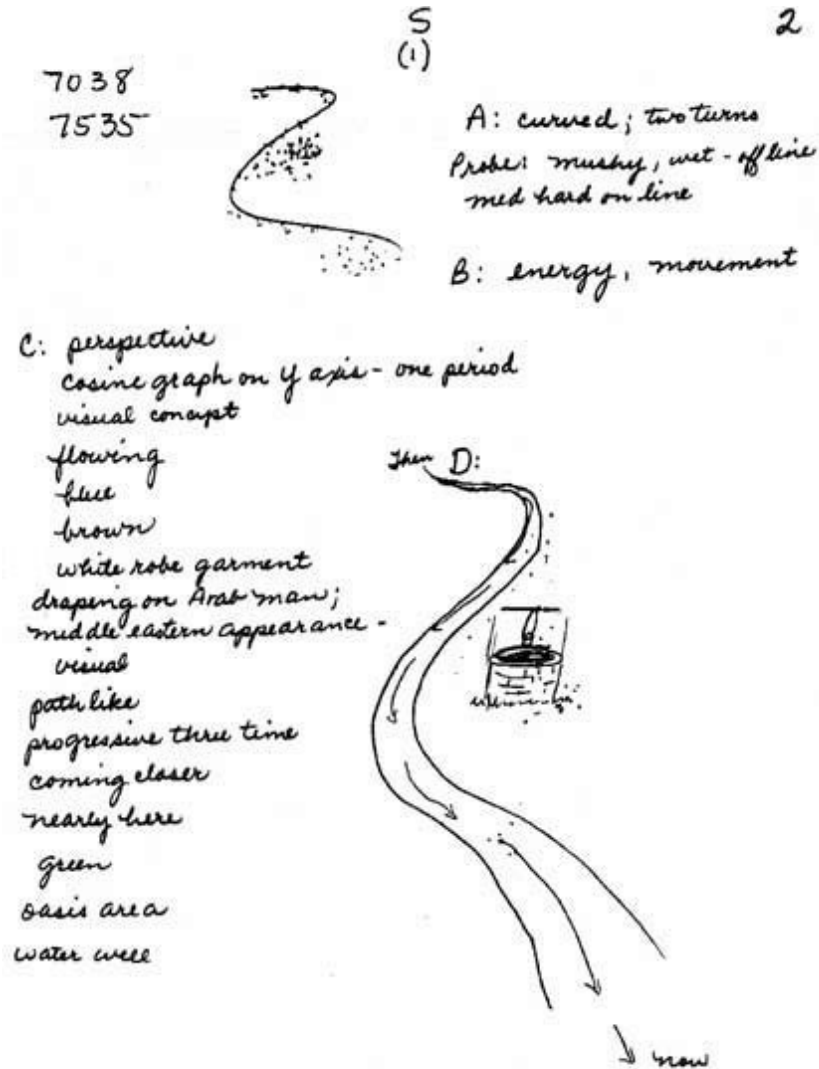 S
2
(1)
7038
7535
A: curved; two turns
Probe: mushy, wet - off line
med hard on line
B: energy, movement
C: perspective
cosine graph on y axis - one period
visual concept
flowing
blue
brown
white robe garment
draping on Arab man;
middle eastern appearance -
visual
path like
progressive three time
coming closer
nearly here
green
oasis area
water well
Then D:
now